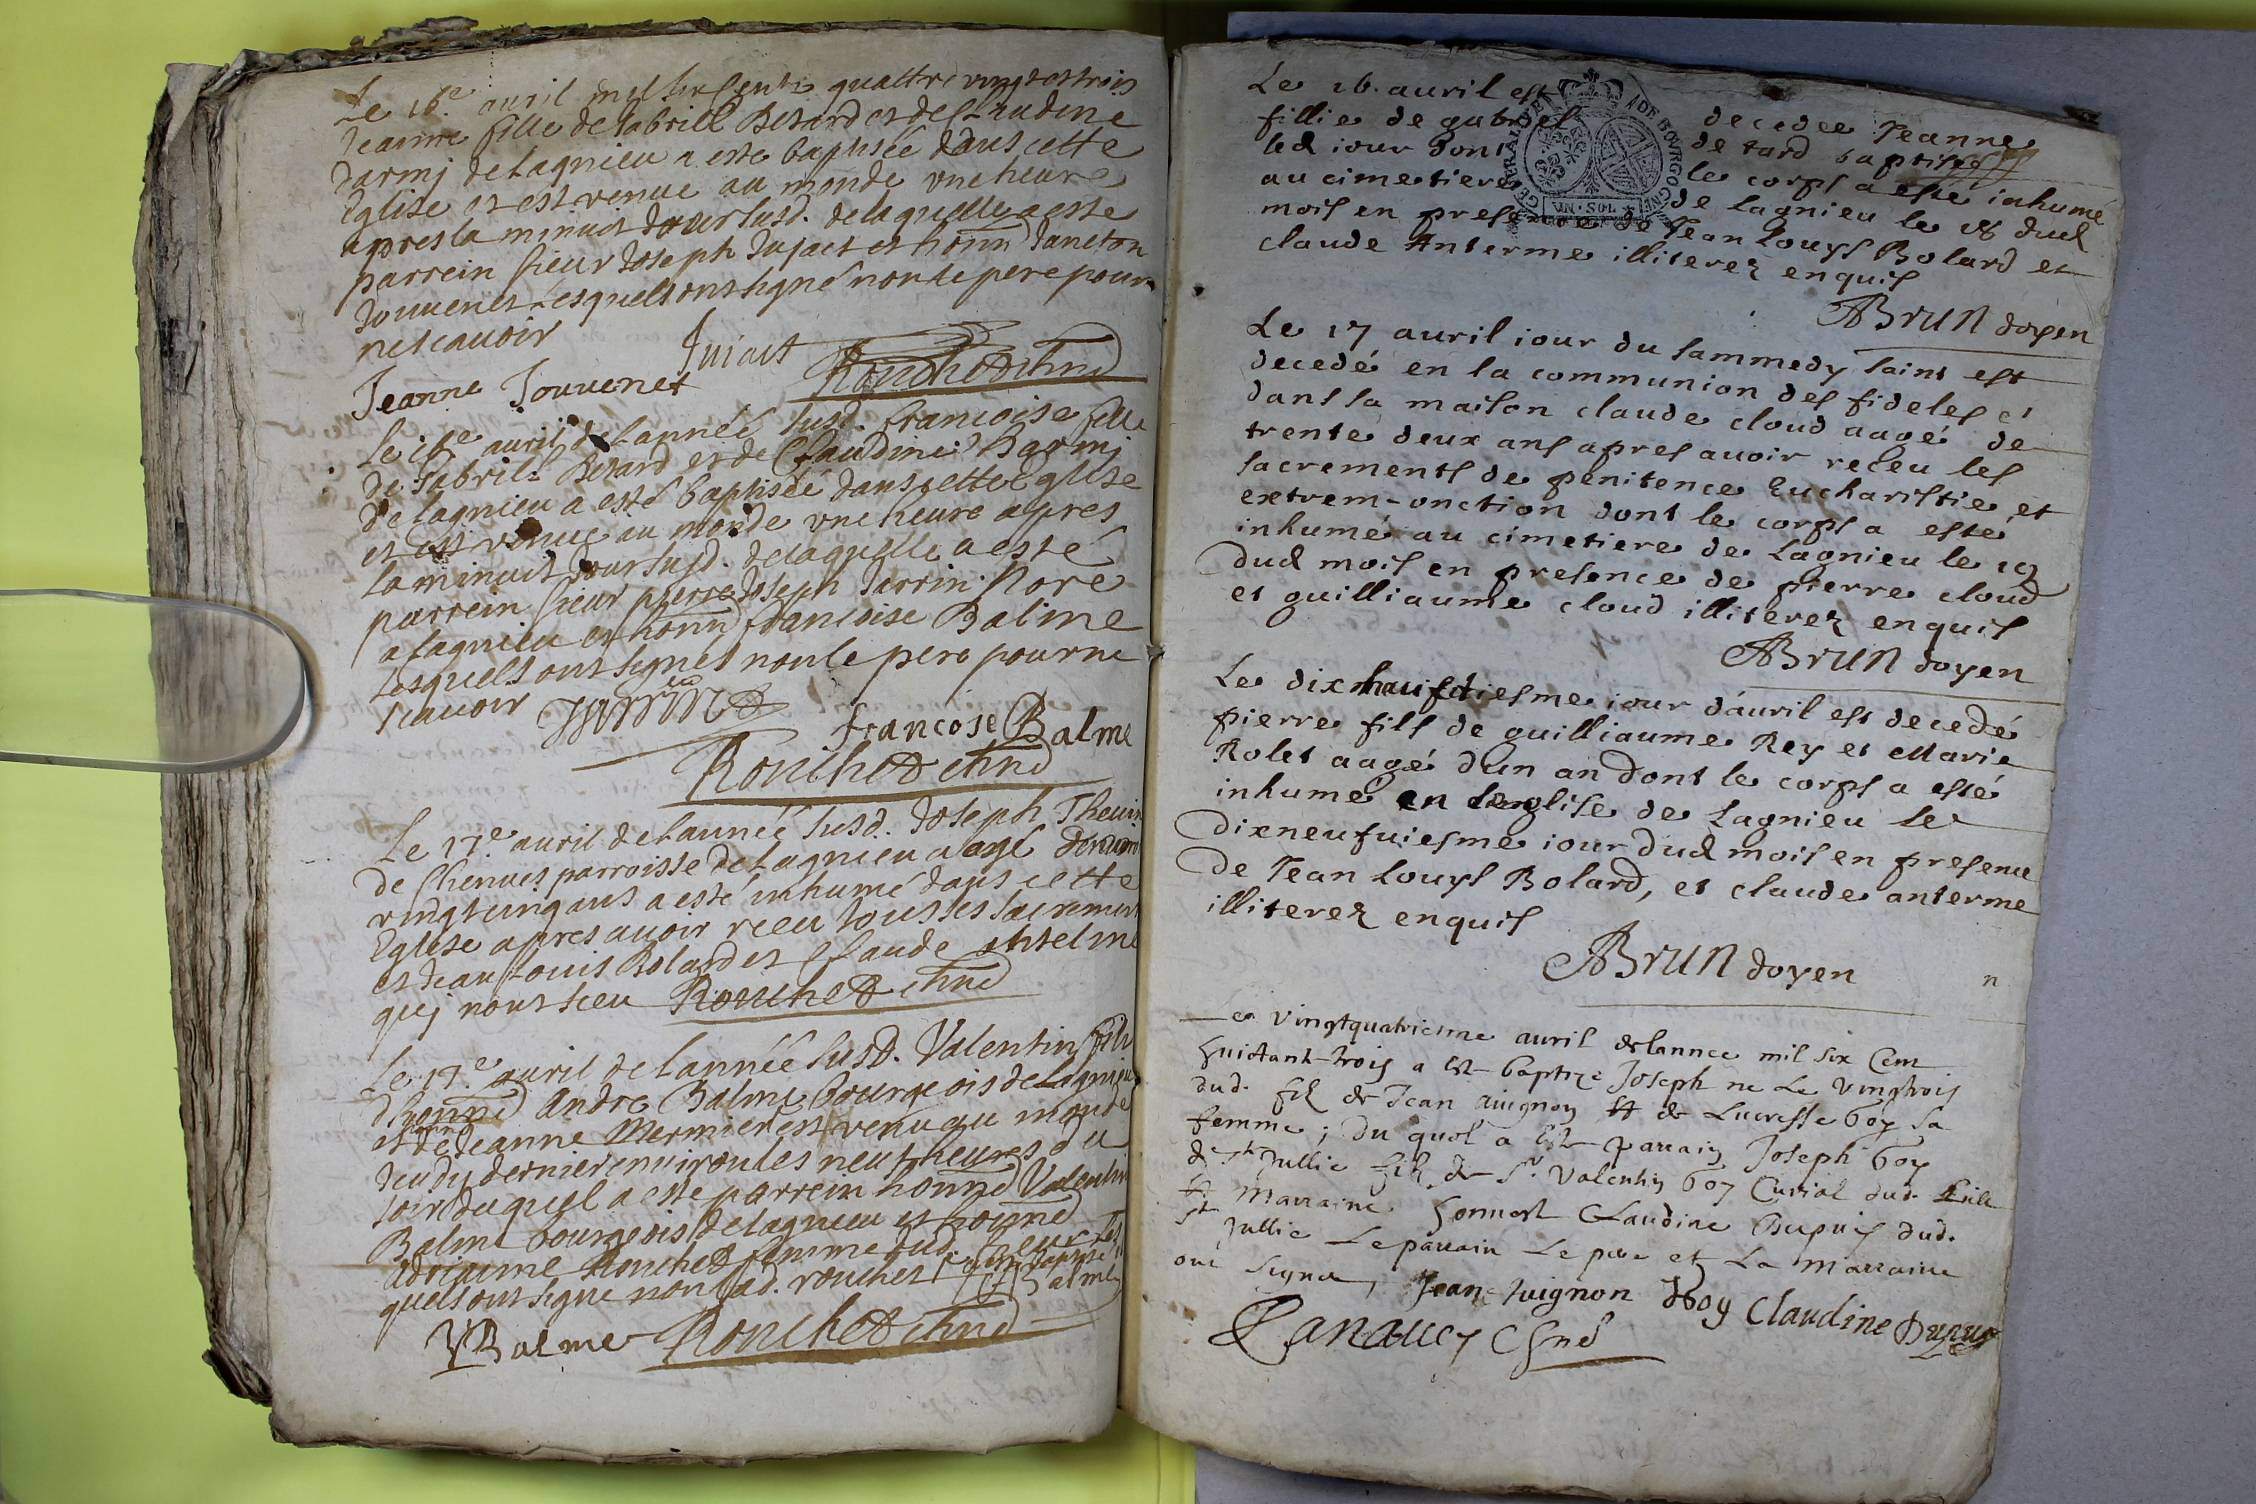 Le 16e avril mil six cents quattre vingt et trois
Jeanne fille de Gabriel Betard et de Claudine
Darmj de Lagnieu a este baptisée dans cette
Eglise et est venue au monde vne heure
apres la minuit Jour susd. de laquelle a este
parrein sieur Joseph Jujact et honn Janeton
Jouvenet Lesquels ont signé non le pere pour
ne scauoir
Juiact
Rouchet chne
Jeanne Jouvenet
Le 16e auril de Lannéé susd. francoise fille
de Gabriel Betard et de Claudine Darmj
de Lagnieu a esté baptisée dans cette Eglise
et est venue au monde vne heure apres
la minuit Jour susd. de laquelle a esté
parrein sieur pierre Joseph Jarrin Nore
a Lagnieu et honn francoise Balme
Lesquels ont signés non le pere pour ne
scauoir
francose Balme
Rouchet chne
Le 17e auril de Lannéé susd. Joseph Theuin
de Chenues parroisse de Lagnieu aagé denuiron
vingt cinq ans a esté inhumé dans cette
Eglise apres auoir receu tous les sacrement
et Jean Louis Bolard et Claude Antelme
quj nont sceu Rouchet chne
Le 17e auril de lannéé susd. Valentin fils
d'honne Andre Balme bourgeois de Lagnieu
et de Jeanne Mermier est venu au monde
Jeudy dernier enuiron les neuf heures du
soir duquel a este parrein honne Valentin
Balme bourgeois de Lagnieu et honne
adrianne Rouchet femme dud. sieur Les
quels ont signe non lad. rouchet
Balme
VBalme Rouchet chne
Le 16. auril est decedee Jeanne
fillie de gabriel betard baptisee
led iour dont le corps a este inhumé
au cimetiere de Lagnieu le 18 dud
mois en presence de Jean Louys Bolard et
claude Anterme illiterez enquis
ABrun doyen
Le 17 auril iour du sammedy saint est
decedé en la communion des fideles et
dans sa maison claude cloud aagé de
trente deux ans apres auoir receu les
sacrements de penitence Eucharistie et
extrem-onction dont le corps a esté
inhumé au cimetiere de Lagnieu le 19
dud mois en presence de pierre cloud
et guilliaume cloud illiterez enquis
ABrun doyen
Le dixhuictiesme iour d'auril est decedé
pierre fils de guilliaume Rey et Marie
Rolet aagé d'un an dont le corps a esté
inhume en Leglise de Lagnieu le
dixneufuiesme iour dud mois en presence
de Jean Louys Bolard, et claude anterme
illiterez enquis
ABrun doyen
Le vingtquatriesme auril de lannee mil six Cent
huictant-trois a Esté baptize Joseph ne Le vingtrois
dud. fils de Jean auignon Et de Lucresse boy sa
femme; du quel a Esté parrain Joseph boy
de st Jullie fils de Sr. Valentin boy Curial dud.
Et Marraine honneste Claudine Dupuis dud.
st Jullie Le parrain Le pere et La Marraine
ont signe, Jean Auignon Jboy Claudine Dupuy
Panaucy Chne